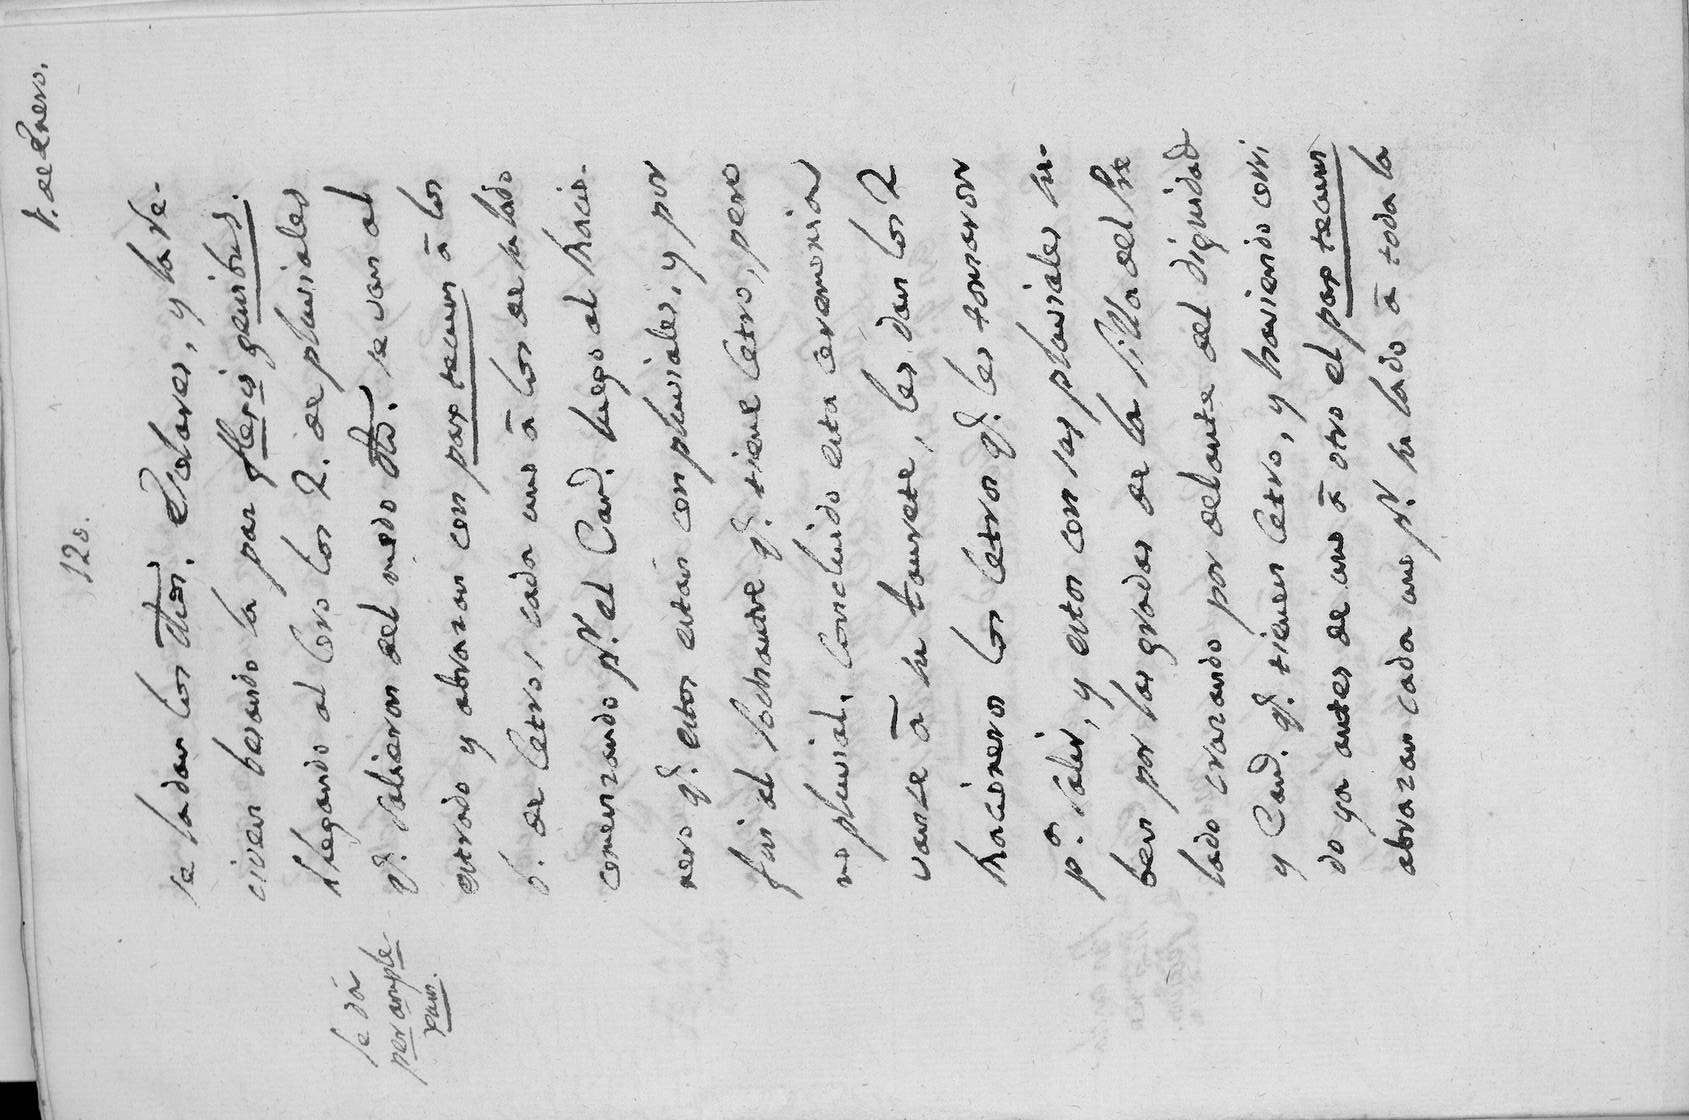 1. de Enero.
120.
se ladan los dhos. Ciriales, y la re-
civen besando la paz flexis genibus.
Llegando al Coro los 2. de pluviales
q.e salieron del modo dho. se van al
entrado y abrazan con pax tecum â los
6. de Cetro, cada uno â los de su lado
comenzando p.r el Cand. luego al Racio-
nero q.e estos estàn con pluviales, y por
fin al Sochantre q.e tiene Cetro, pero
no pluvial. Concluido esta ceremonia
vanse â su taurete, les dan los 2
Racioneros los Cetros q.e les tomaron
p.a salir, y estos con sus pluviales su-
ben por las gradas de la silla del Pre
lado cruzando por delante del Dignidad
y Cand. q.e tienen Cetro, y haviendo corri
do ya antes de uno â otro el pax tecum
abrazan cada uno p.r su lado â toda la
Se dà
per ample
xum.